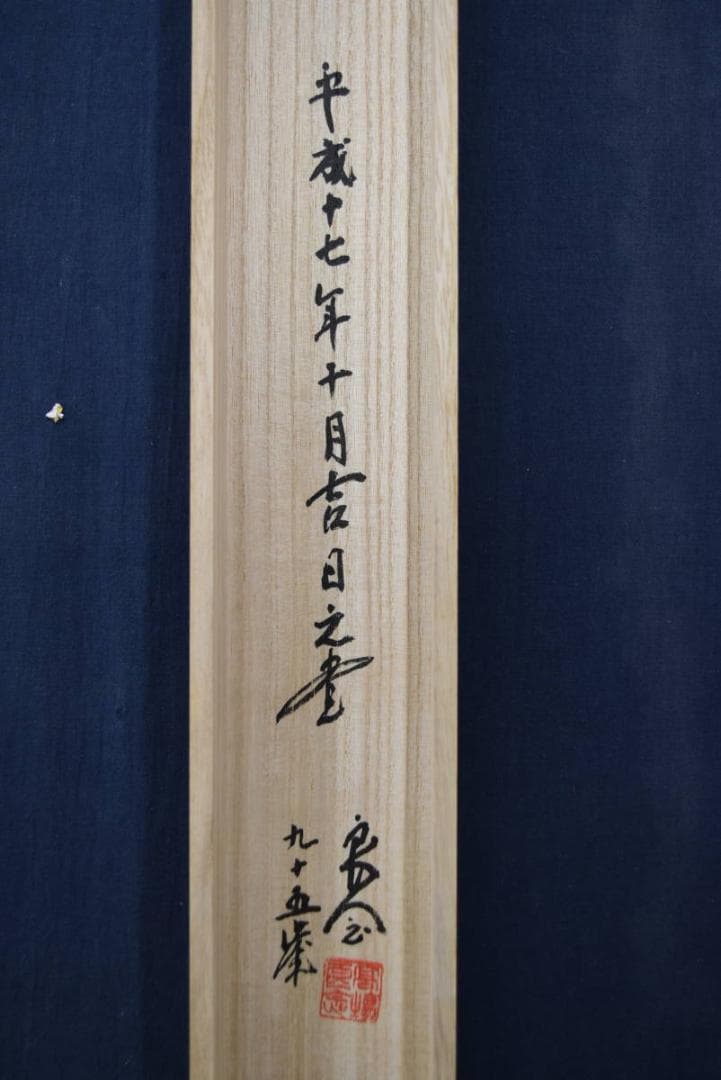 平成十七年十月吉日之
九十五歳